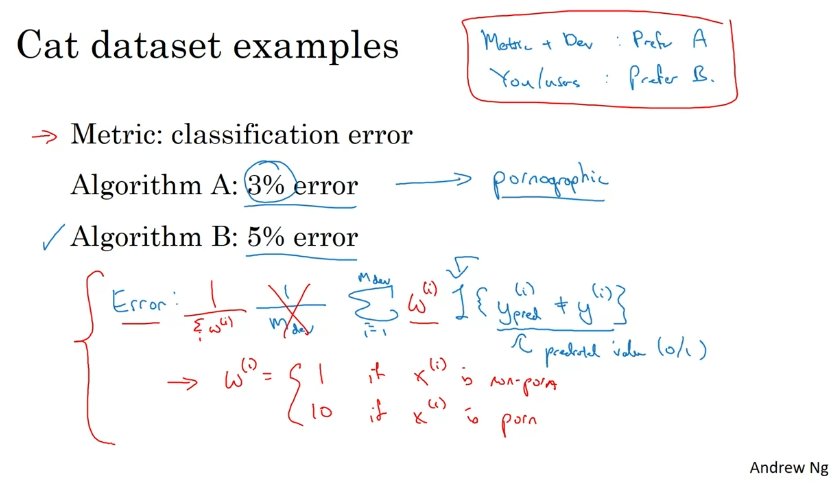 Cat dataset examples
Metric + Dev : Prefer A
You/users : Prefer B.
→ Metric: classification error
Algorithm A: 3% error → pornographic
✓ Algorithm B: 5% error
Error: 1/Σᵢ w⁽ⁱ⁾ 1/m_dev Σᵢ₌₁^{m_dev} w⁽ⁱ⁾ 1{ y_pred⁽ⁱ⁾ ≠ y⁽ⁱ⁾ }
predicted value (0/1)
→ w⁽ⁱ⁾ = { 1 if x⁽ⁱ⁾ is non-porn
10 if x⁽ⁱ⁾ is porn
Andrew Ng